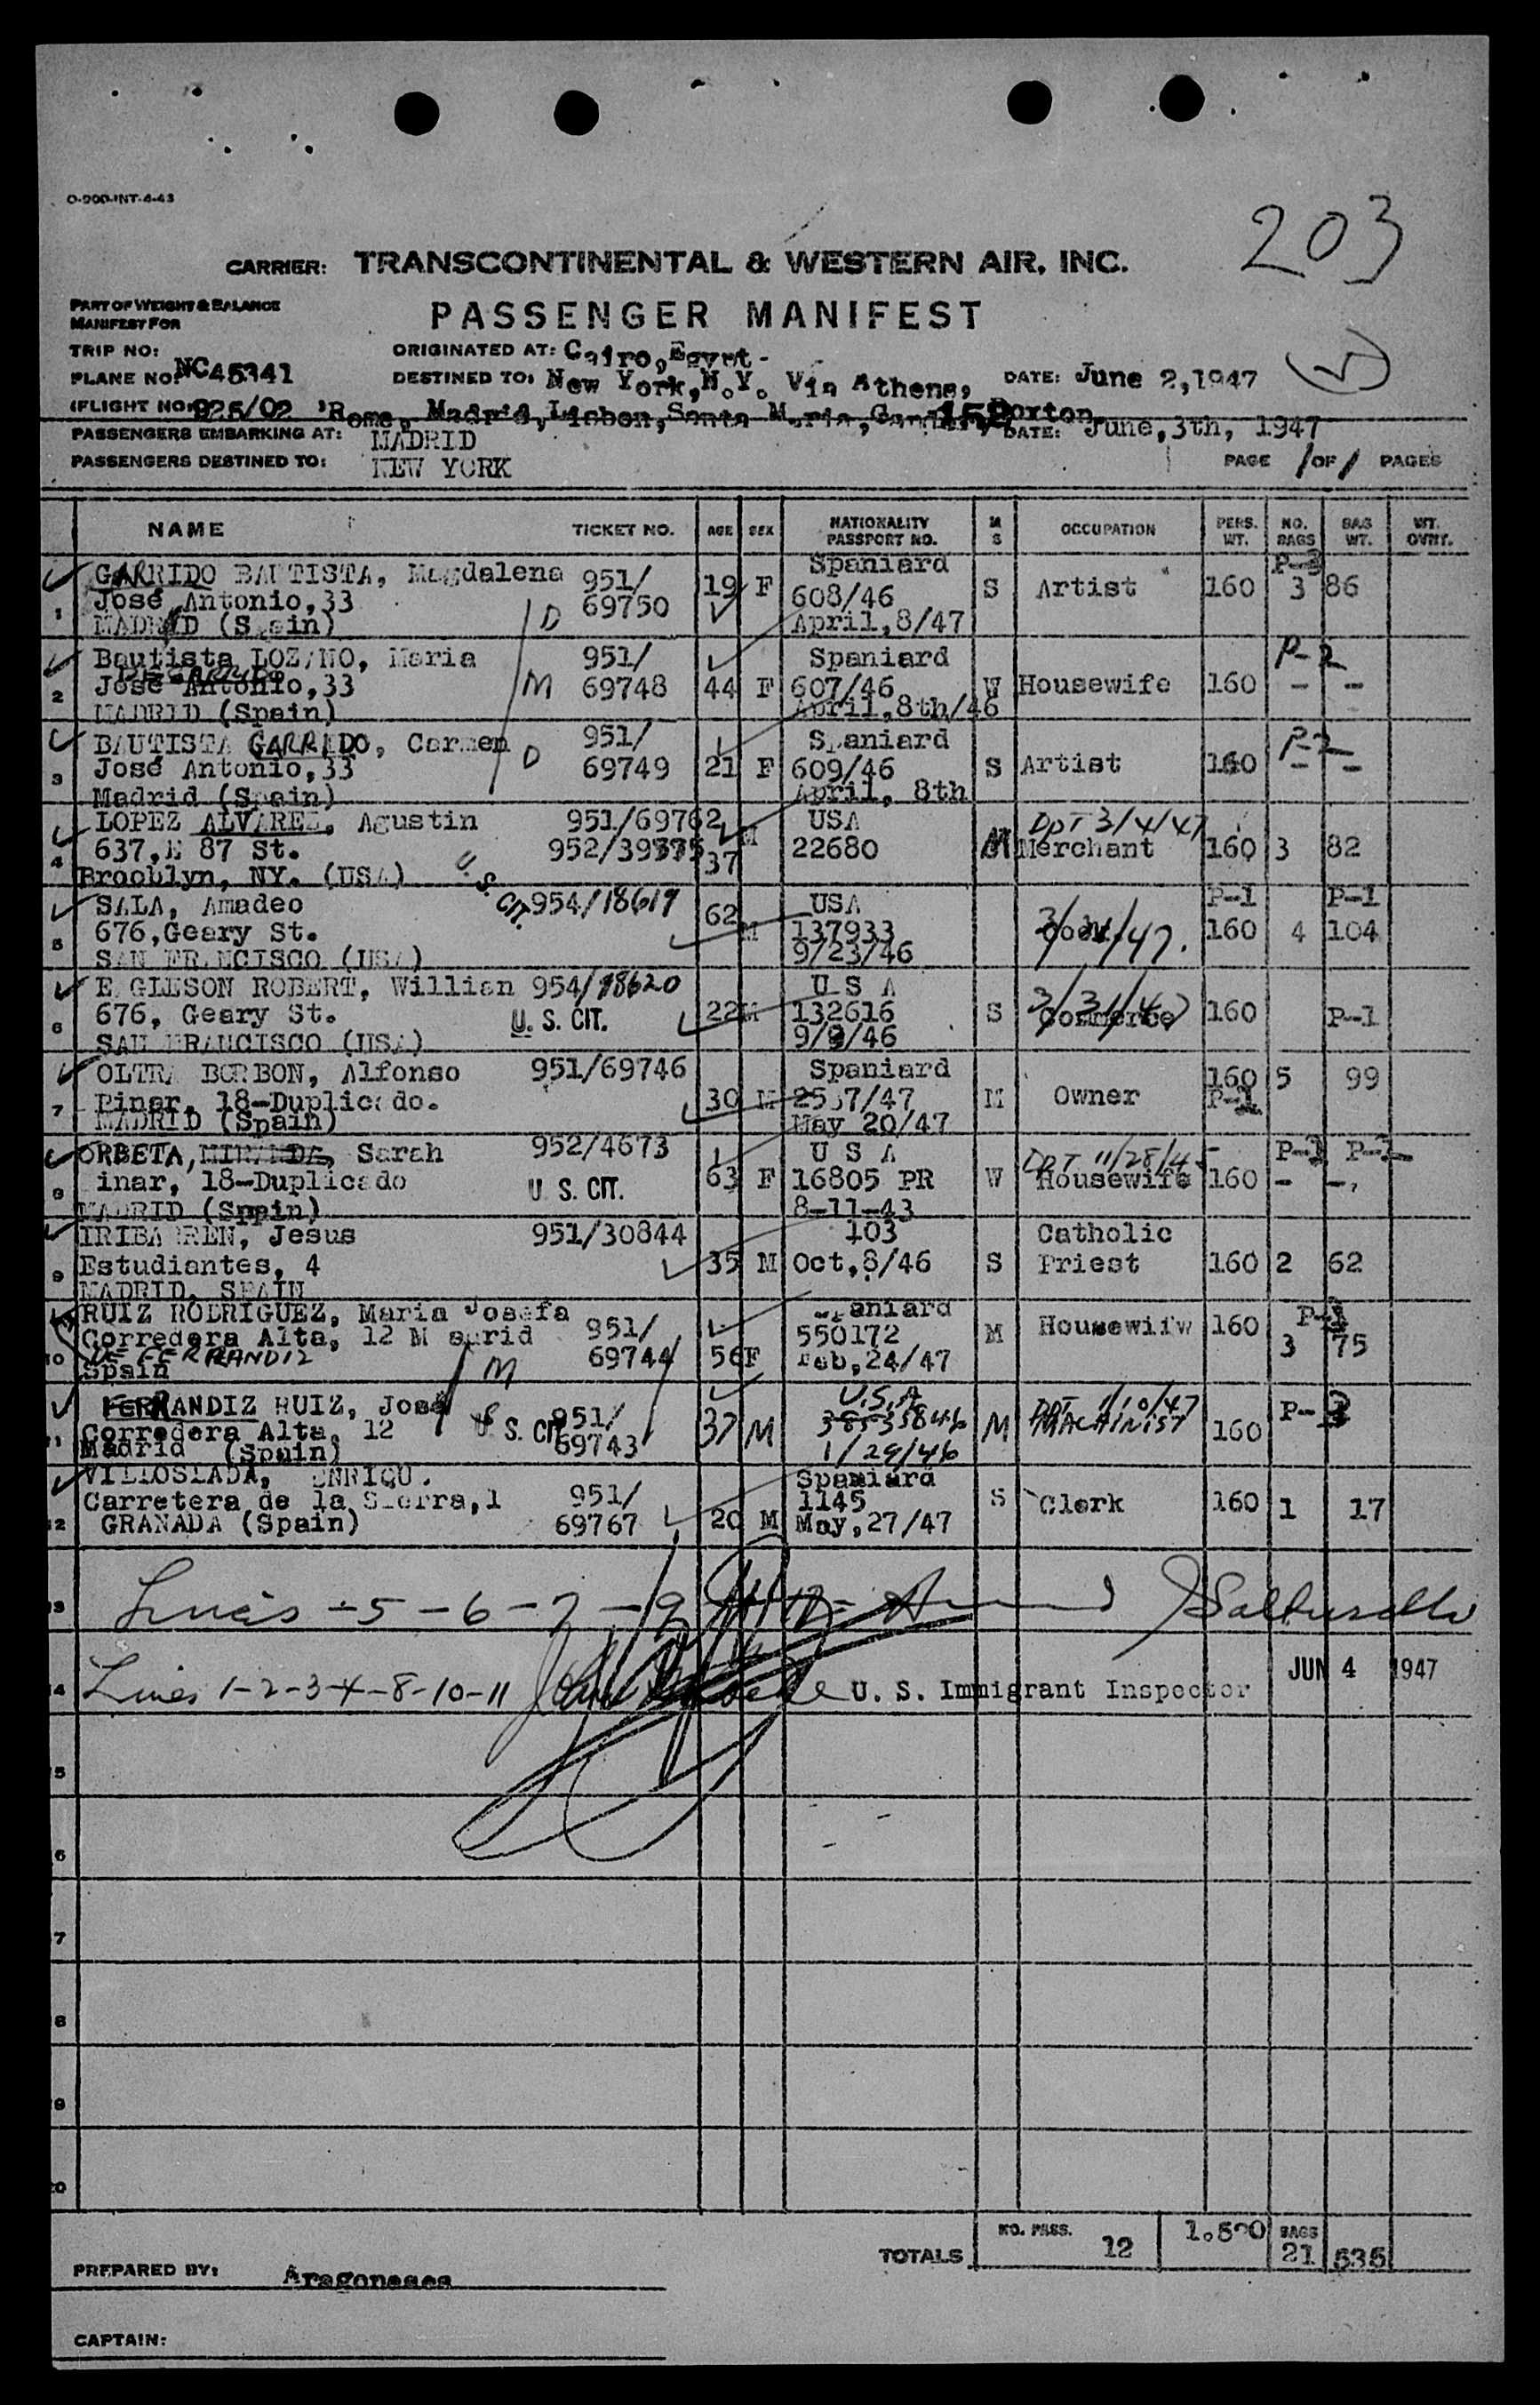 O-900-INT-4-43
203
CARRIER: TRANSCONTINENTAL & WESTERN AIR, INC.
PART OF WEIGHT & BALANCE
MANIFEST FOR
PASSENGER MANIFEST
TRIP NO:
ORIGINATED AT: Cairo, Egypt-
PLANE NO: NC45341
DESTINED TO: New York, N.Y. Via Athens, DATE: June 2, 1947
(FLIGHT NO: 925/02 Rome, Madrid, Lisbon, Santa Maria,
PASSENGERS EMBARKING AT: MADRID DATE: June, 3th, 1947
PASSENGERS DESTINED TO: NEW YORK PAGE 1 OF 1 PAGES
NAME TICKET NO. AGE SEX NATIONALITY PASSPORT NO. M S OCCUPATION PERS. WT. NO. BAGS BAG WT. WT. OVNT.
GARRIDO BAUTISTA, Magdalena 951/ 19 F Spaniard S Artist 160 3 86
1 José Antonio, 33 D 69750 608/46
MADRID (Spain) April, 8/47
Bautista LOZANO, Maria 951/ Spaniard P-2
DE GARRIDO
2 José Antonio, 33 M 69748 44 F 607/46 W Housewife 160 - -
MADRID (Spain) April, 8th/46
BAUTISTA GARRIDO, Carmen 951/ Spaniard P-2
3 José Antonio, 33 D 69749 21 F 609/46 S Artist 160 - -
Madrid (Spain) April, 8th
LOPEZ ALVAREZ, Agustin 951/69762 M USA DPT 3/4/47
4 637, E 87 St. 952/ 37 22680 M Merchant 160 3 82
Brooblyn, NY. (USA) U. S. CIT.
SALA, Amadeo 954/18619 62 USA P-1 P-1
5 676, Geary St. M 137933 160 4 104
SAN FRANCISCO (USA) 9/23/46
E GLESON ROBERT, Willian 954/18620 U S A 3/31/47
6 676, Geary St. U. S. CIT. 22 M 132616 S Commerce 160 P-1
SAN FRANCISCO (USA) 9/9/46
OLTRA BORBON, Alfonso 951/69746 Spaniard 160 5 99
7 Pinar, 18-Duplicado. 30 M 2557/47 M Owner
MADRID (Spain) May 20/47
ORBETA, MIRANDA, Sarah 952/4673 U S A
8 inar, 18-Duplicado U. S. CIT. 63 F 16805 PR W Housewife 160 - -
MADRID (Spain) 8-11-43
IRIBARREN, Jesus 951/30844 103 Catholic
9 Estudiantes, 4 35 M Oct, 8/46 S Priest 160 2 62
MADRID, SPAIN
RUIZ RODRIGUEZ, Maria Josefa Spaniard
Corredera Alta, 12 Madrid 951/ 550172 M Housewifw 160
10 DE FERRANDIZ 69744 56 F Feb, 24/47 3 75
Spain M
FERRANDIZ RUIZ, José U. S. CIT. 951/ U.S.A DPT 1/10/47
11 Corredera Alta, 12 69743 37 M M MACHINIST 160
Madrid (Spain) 1/29/46
VILLOSLADA, ENRIQU. Spaniard
Carretera de la Sierra, 1 951/ 1145 S Clerk 160 1 17
12 GRANADA (Spain) 69767 20 M May, 27/47
13 Lines -5-6-7-9-12-
14 Lines 1-2-3-4-8-10-11 U. S. Immigrant Inspector JUN 4 1947
15
16
17
18
19
20
TOTALS NO. PASS. 12 BAGS 21 535
PREPARED BY: Aragoneses
CAPTAIN: